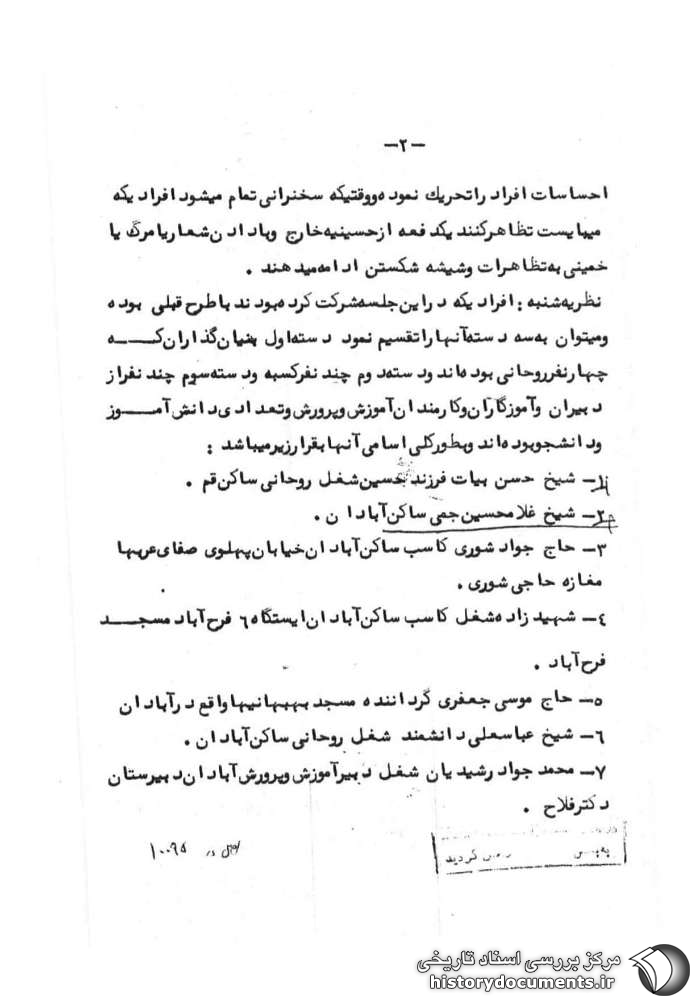 -۲-
احساسات افراد را تحریك نموده و وقتیکه سخنرانی تمام میشود افرادیکه
میبایست تظاهر کنند یکدفعه از حسینیه خارج وبا دادن شعار یا مرگ یا
خمینی به تظاهرات و شیشه شکستن ادامه میدهند .
نظریه شنبه : افرادیکه در این جلسه شرکت کرده بودند با طرح قبلی بوده
ومیتوان به سه دسته آنها را تقسیم نمود دسته اول بنیان گذاران کــــه
چهار نفر روحانی بوده اند ودسته دوم چند نفر کسبه ودسته سوم چند نفر از
دبیران وآموزگاران وکارمندان آموزش وپرورش وتعدادی دانش آمـــوز
ودانشجو بوده اند وبطور کلی اسامی آنها بقرار زیر میباشد :
۱- شیخ حسن بیات فرزند حسین شغل روحانی ساکن قم .
۲- شیخ غلامحسین جمی ساکن آبادان .
۳- حاج جواد شوری کاسب ساکن آبادان خیابان پهلوی صفای عربها
مغازه حاجی شوری .
٤- شهیدزاده شغل کاسب ساکن آبادان ایستگاه ٦ فرح آباد مسجــــد
فرح آباد .
۵- حاج موسی جعفری گرداننده مسجد بهبهانیها واقع در آبادان
٦- شیخ عباسعلی دانشمند شغل روحانی ساکن آبادان .
۷- محمد جواد رشیدیان شغل دبیر آموزش وپرورش آبادان دبیرستان
دکتر فلاح .
گردید
اصل در ۱۰۰۹۵
مرکز بررسی اسناد تاریخی
historydocuments.ir